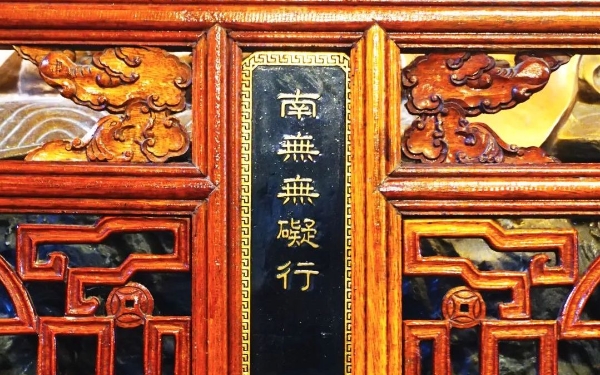 南無無礙行